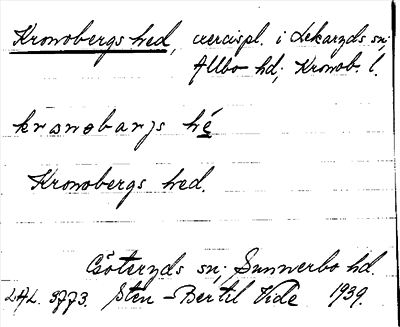 Kronobergs hed, exercispl. i Lekaryds sn;
Allbo hd; Kronob. l.
krɷnɵbarjs hé
Kronobergs hed.
Göteryds sn; Sunnerbo hd.
LAL. 3773. Sten-Bertil Vide 1939.